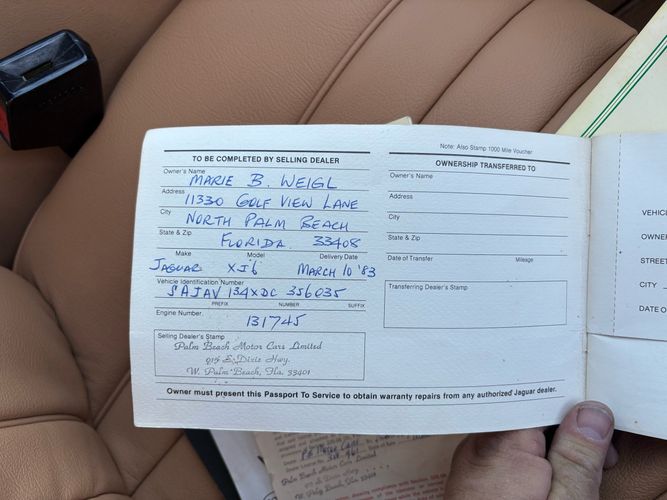 TO BE COMPLETED BY SELLING DEALER
Owner's Name
MARIE B. WEIGL
Address
11330 GOLF VIEW LANE
City
NORTH PALM BEACH
State & Zip
FLORIDA. 33408
Make Model Delivery Date
JAGUAR XJ6 MARCH 10 '83
Vehicle Identification Number
SAJAV 134XDC 356035
PREFIX NUMBER SUFFIX
Engine Number
131745
Selling Dealer's Stamp
Palm Beach Motor Cars Limited
915 S. Dixie Hwy.
W. Palm Beach, Fla. 33401
Note: Also Stamp 1000 Mile Voucher
OWNERSHIP TRANSFERRED TO
Owner's Name
Address
City
State & Zip
Date of Transfer Mileage
Transferring Dealer's Stamp
Owner must present this Passport To Service to obtain warranty repairs from any authorized Jaguar dealer.
VEHIC
OWNE
STREE
CITY
DATE O
Palm Beach Motor Cars Limited